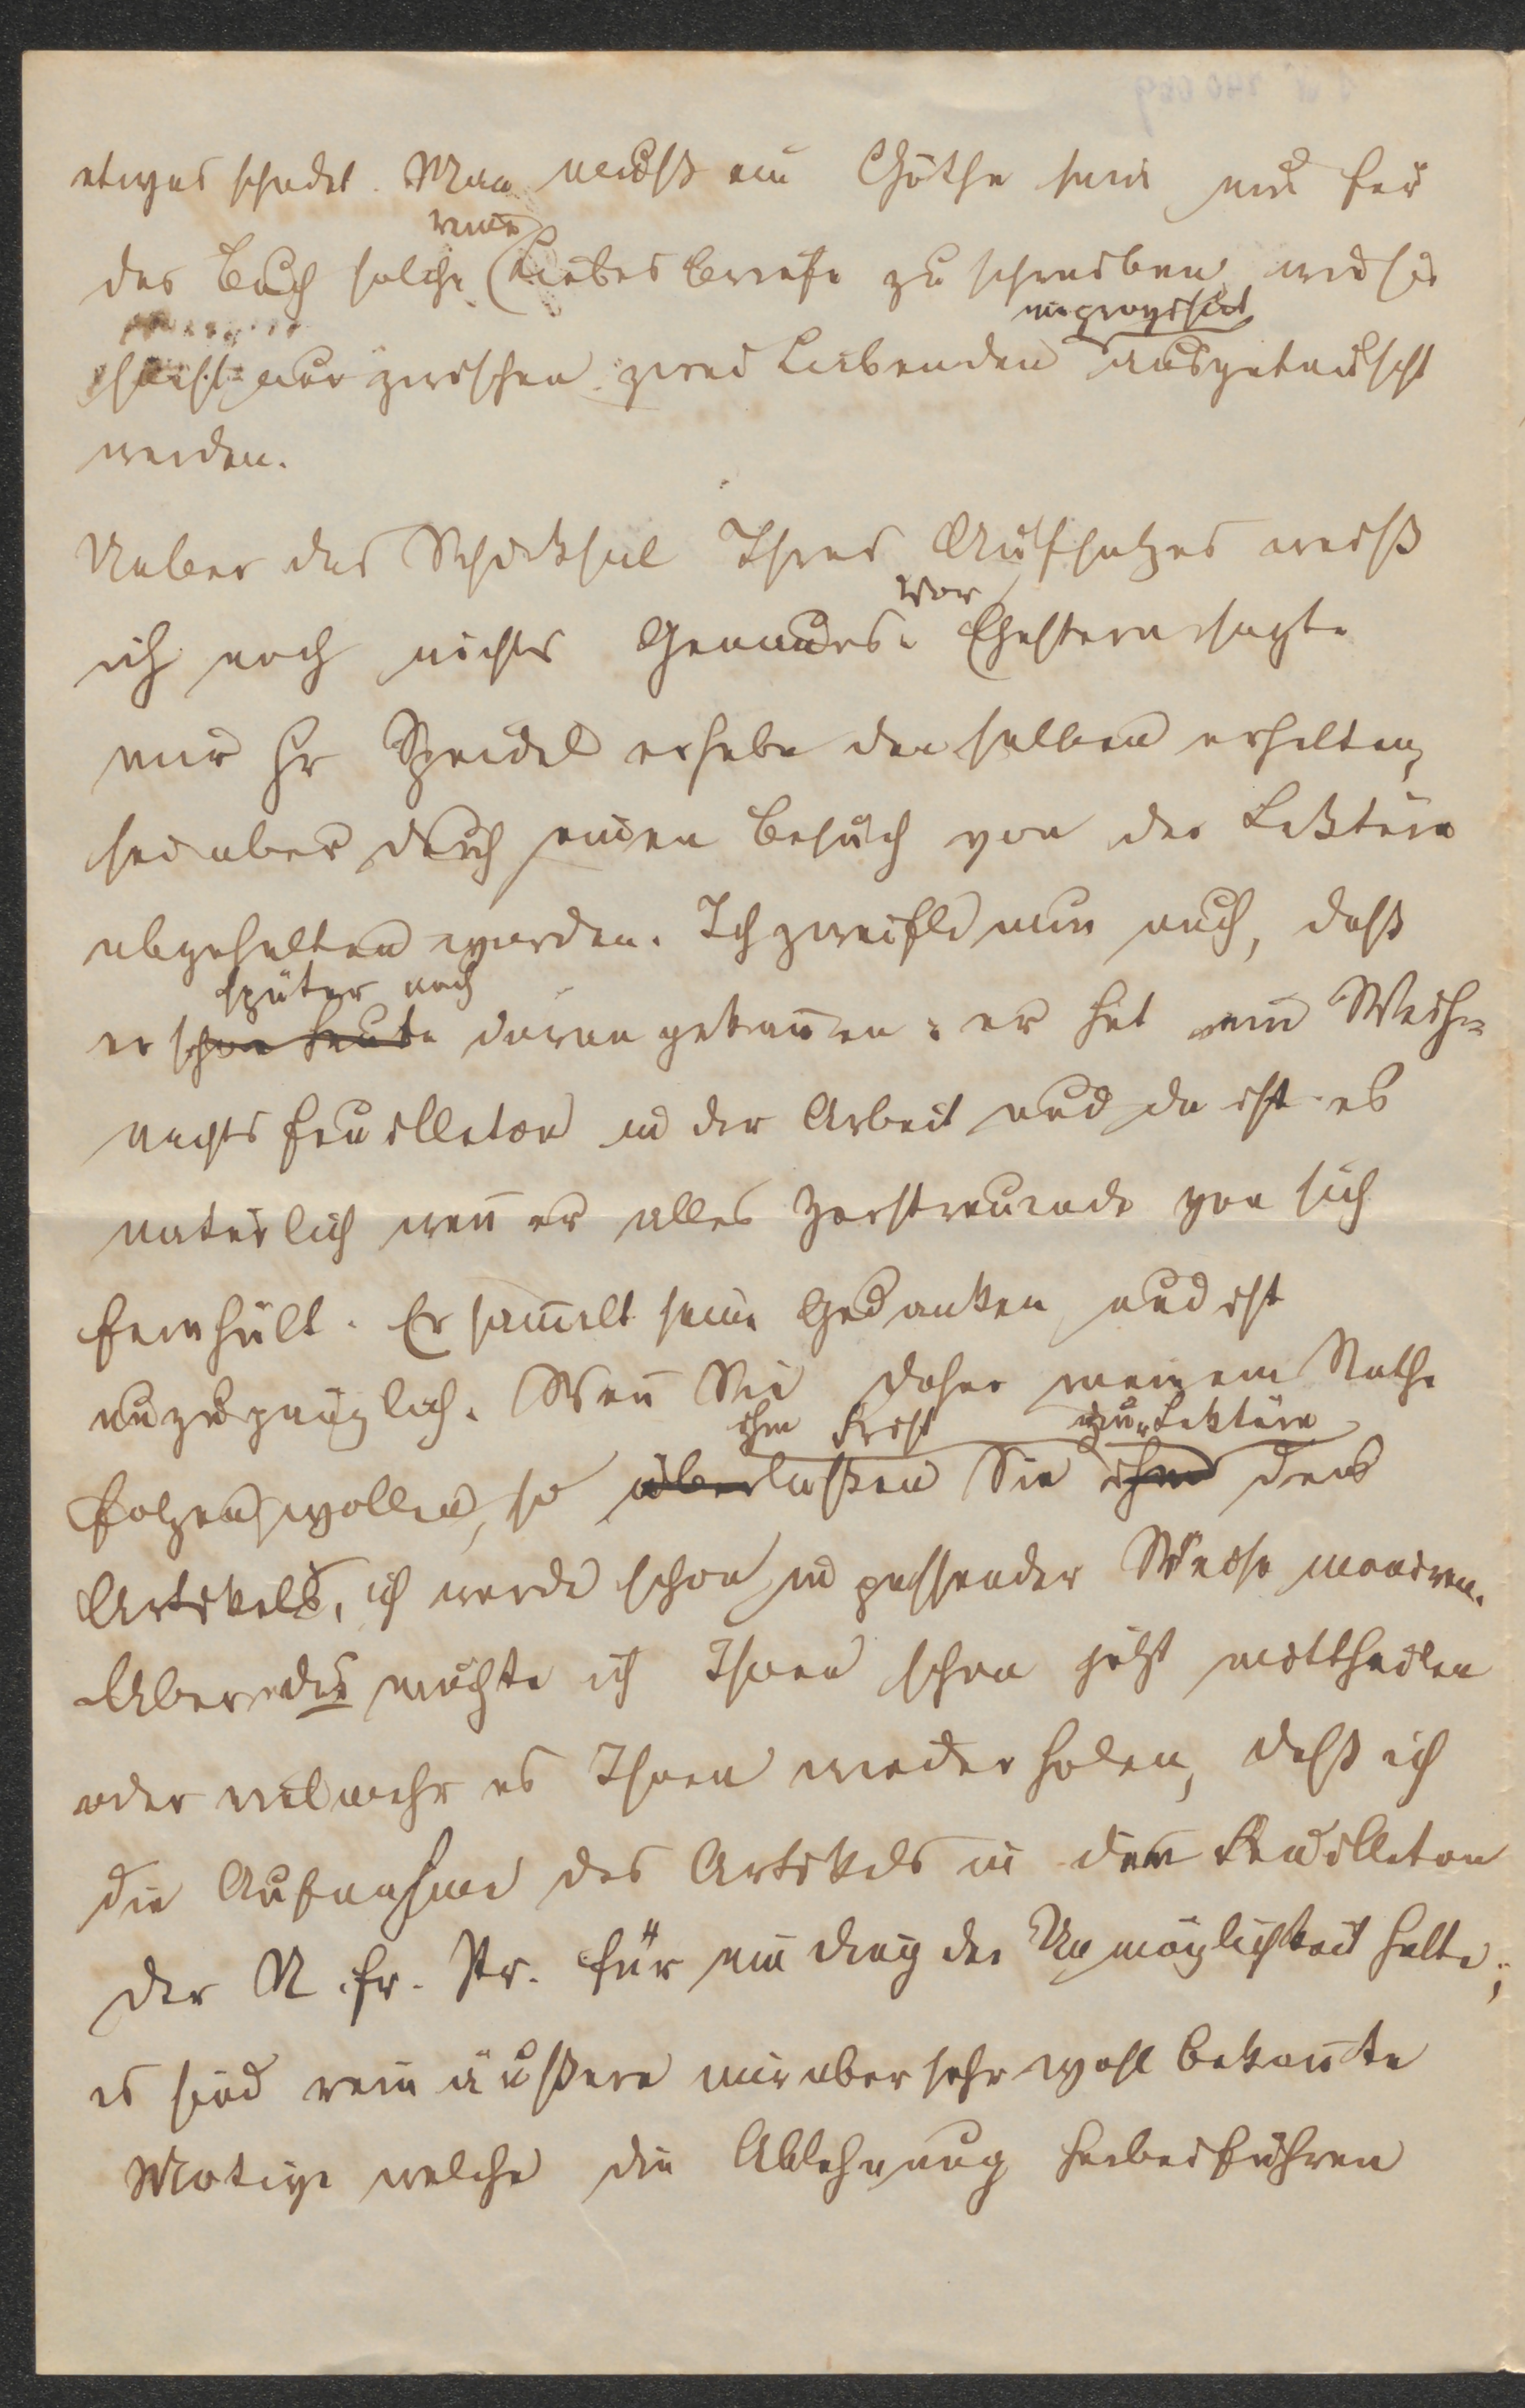 etwas schadet. Man muß ein Göthe sein um für
das Buch solche reine Liebesbriefe zu schreiben, wie sie
sonst nur zwischen zwei Liebenden improvisirt ausgetauscht
werden.
Ueber das Schicksal Ihres Aufsatzes weiß
ich noch nichts Genaues. Vorgestern sagte
mir Hr Speidel er habe denselben erhalten,
sei aber durch einen Besuch von der Lektüre
abgehalten worden. Ich zweifle nun auch, daß
er schon heute später noch daran gekom̄en: er hat ein Weih-
nachtsfeuilleton in der Arbeit und da ist es
natürlich wen̄ er alles Zerstreuende von sich
fernhält. Er sam̄elt seine Gedanken und ist
unzugänglich. Wen̄ Sie daher meinem Rathe
folgen wollen, so überlaßen Sie ihm Frist zur Lektüre ihm des
Artikels, ich werde schon in passender Weise moniren.
Aber das möchte ich Ihnen schon jetzt mittheilen
oder vielmehr es Ihnen wiederholen, daß ich
die Aufnahme des Artikels in dem Feuilleton
der N. fr. Pr. für ein Ding der Unmöglichkeit halte;
es sind rein äußere mir aber sehr wohl bekan̄te
Motive welche die Ablehnung herbeiführen